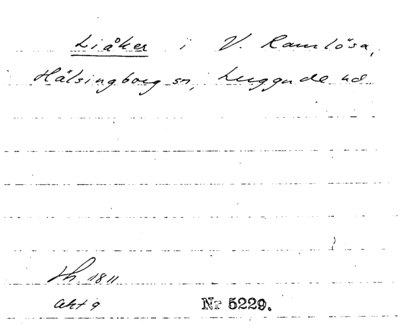 Liåker i V. Ramlösa,
Hälsingborg sn, Luggude hd
Lh. 1811
akt 9 Nr 5229.